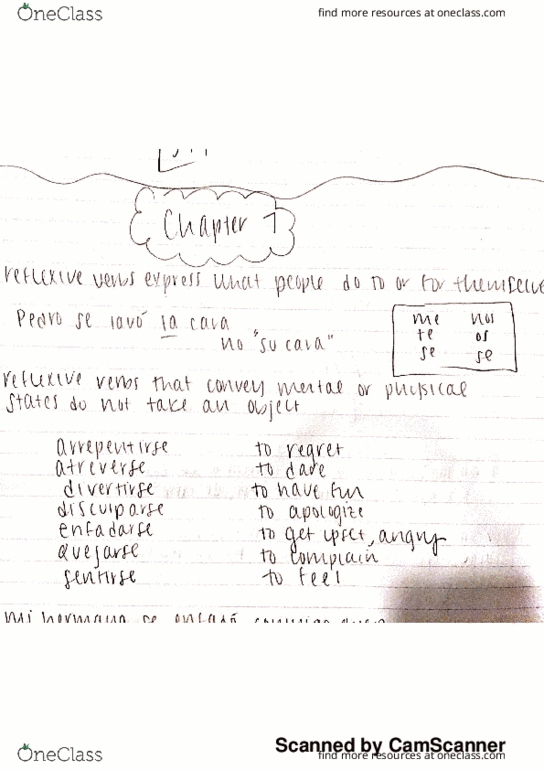 OneClass find more resources at oneclass.com
Chapter 7
reflexive verbs express what people do to or for themselve
Pedro se lavó la cara
no "su cara"
me nos
te os
se se
reflexive verbs that convey mental or physical
states do not take an object
arrepentirse to regret
atreverse to dare
divertirse to have fun
disculparse to apologize
enfadarse to get upset, angry
quejarse to complain
sentirse to feel
mi hermana se enfadó conmigo
Scanned by CamScanner
OneClass find more resources at oneclass.com